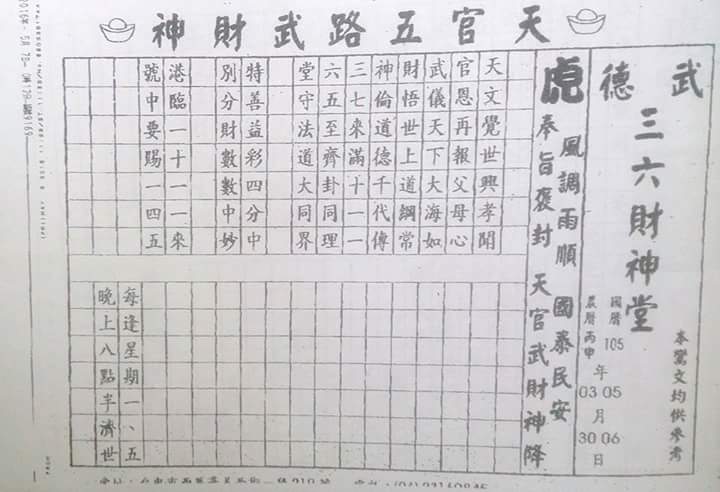 天官五路武財神
武德
三六財神堂
本鸞文均供參考
國曆105年05月06日
農曆丙申年03月30日
風調雨順 國泰民安
虎 奉旨褒封 天官武財神降
天文覺世興孝聞
官恩再報父母心
武儀天下大海如
財悟世上道綱常
神倫道德千代傳
三七來滿十一一
六五至齊卦同理
堂守法道大同界
特善益彩四分中
別分財數數中妙
港臨一十一一來
號中要賜一四五
每逢星期一、五
晚上八點半濟世